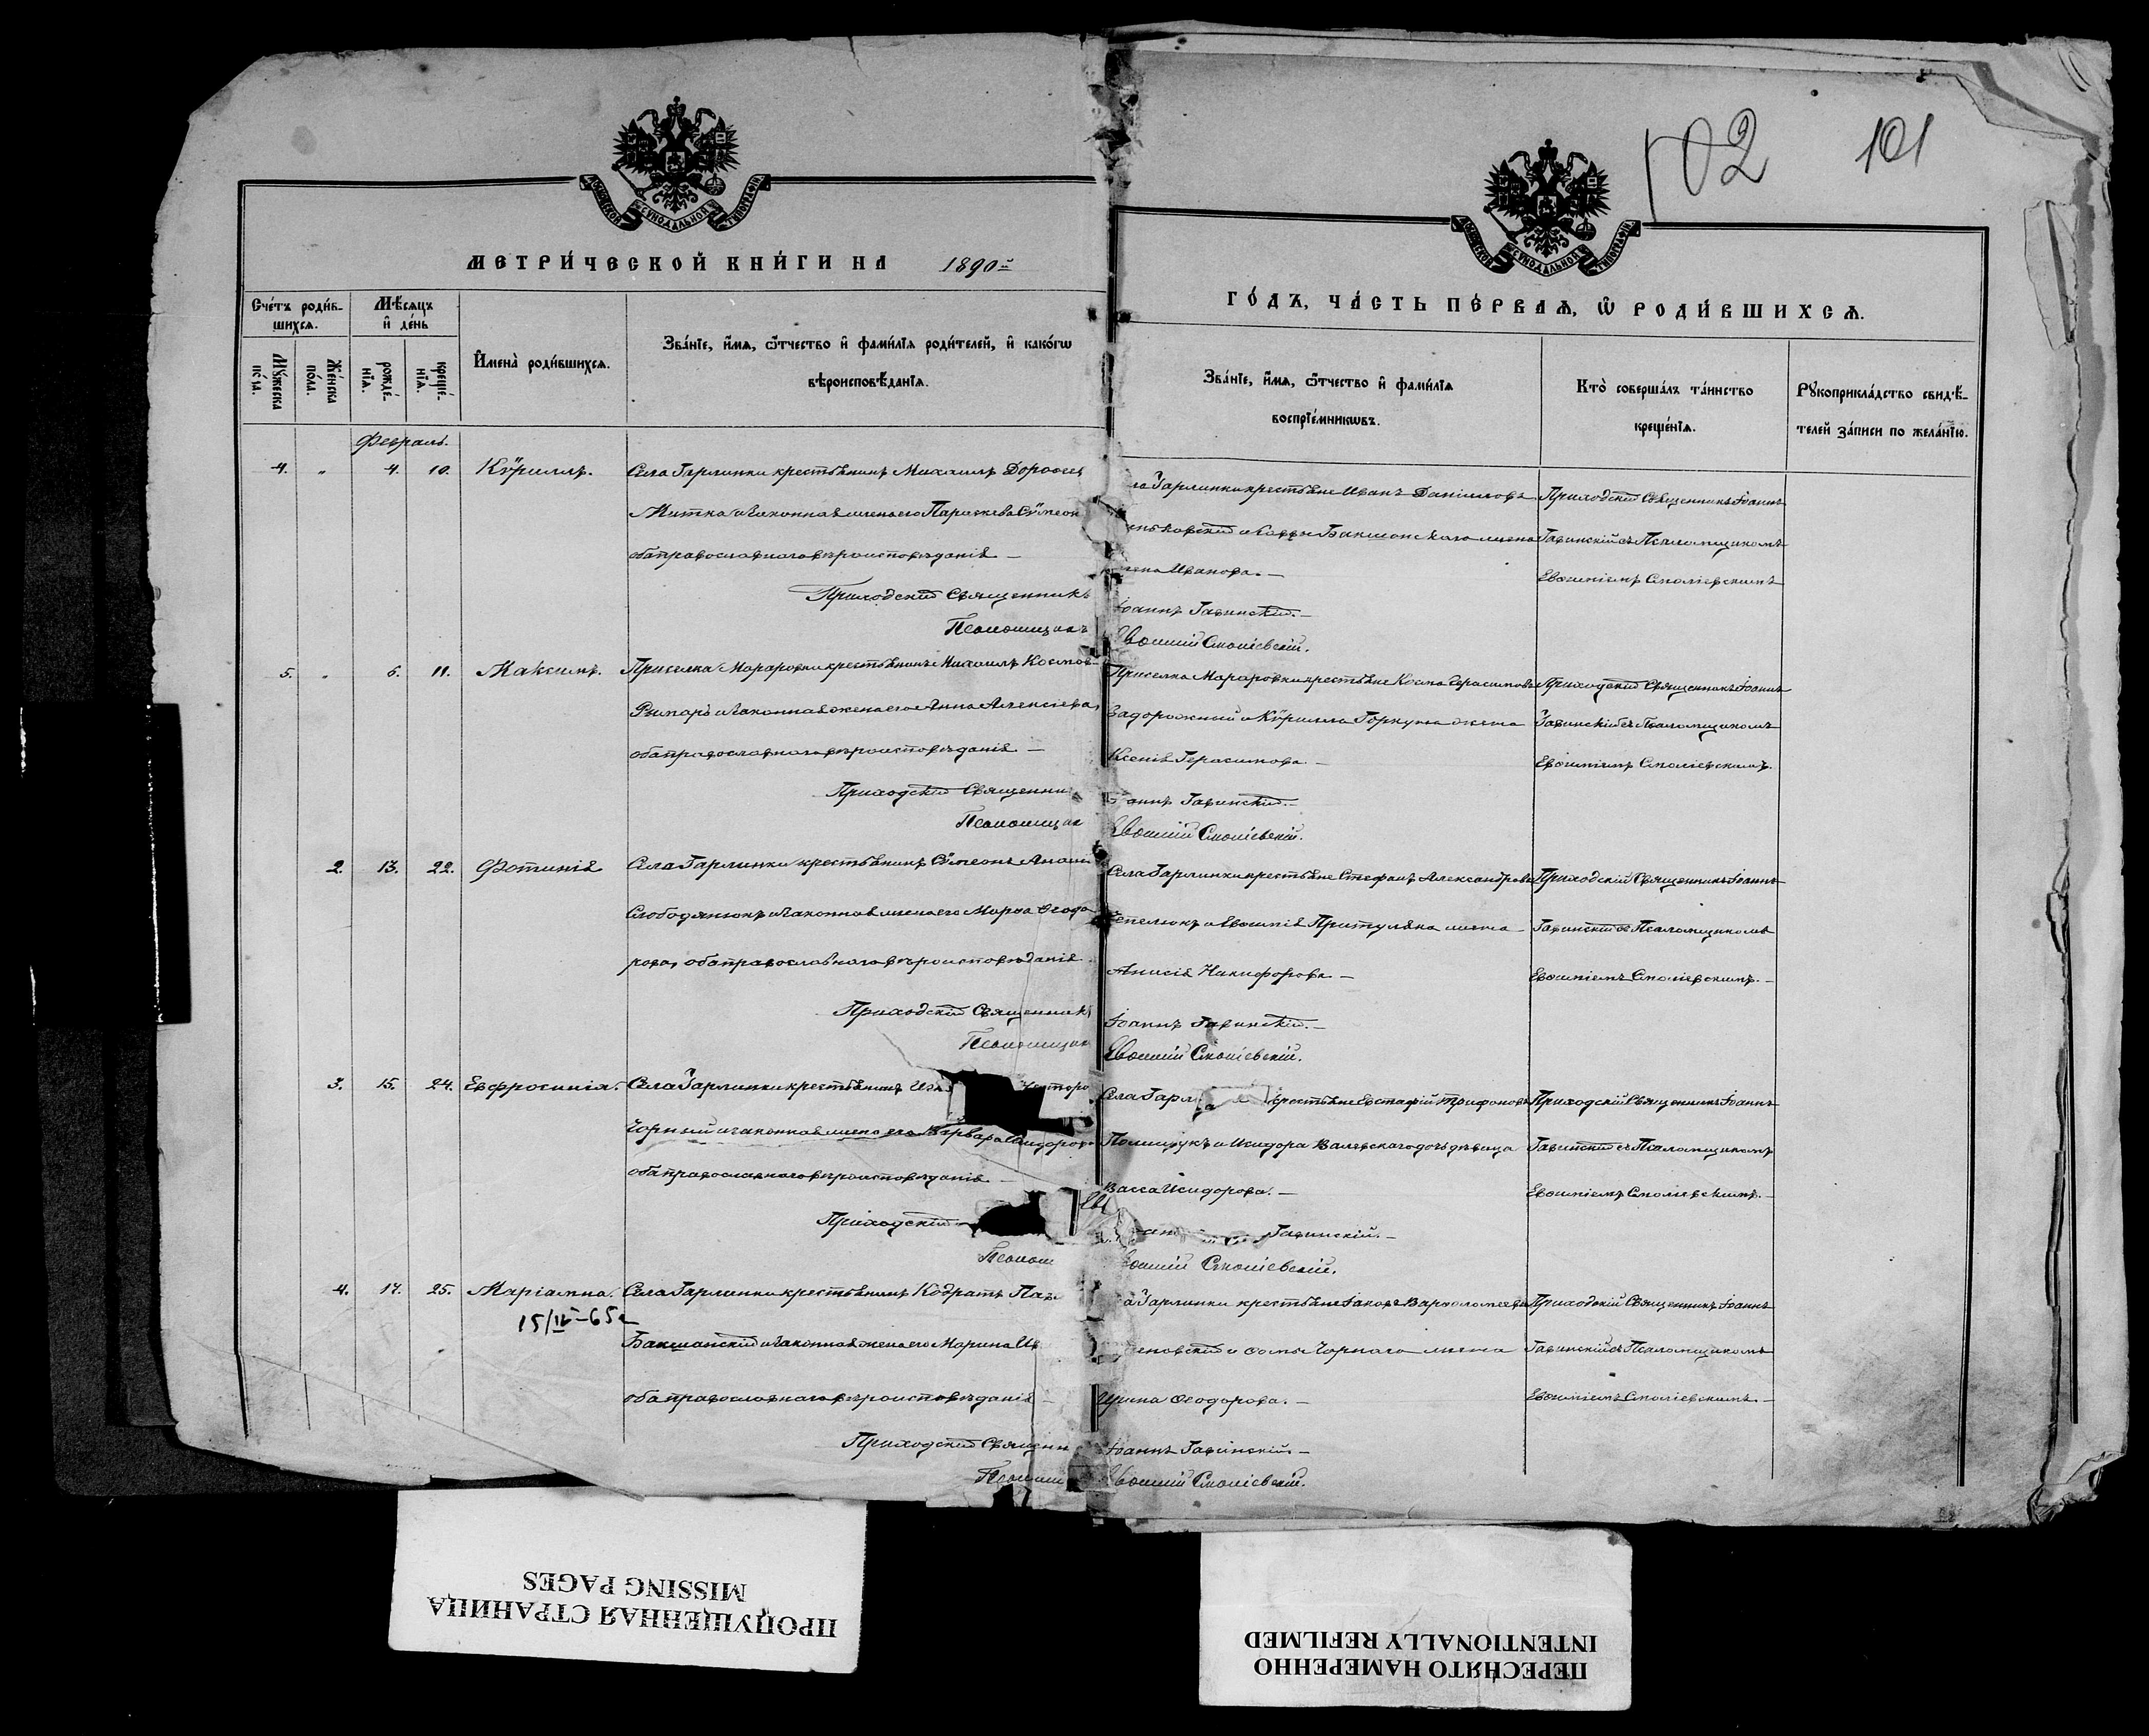 102 101
МОСКОВСКОЙ СѴНОДАЛЬНОЙ ТИПОГРАФІИ
МЕТРИ́ЧЕСКОЙ КНИ́ГИ НА 1890й
МОСКОВСКОЙ СѴНОДАЛЬНОЙ ТИПОГРАФІИ
ГО́ДЪ, ЧА́СТЬ ПЕ́РВАѦ, Ѿ РОДИ́ВШИХСѦ.
Сче́тъ роди́в-
шихсѧ.
Мꙋ́жеска по́ла.
Же́нска по́ла.
Мѣ́сѧцъ
и҆ де́нь
рожде́-нїѧ.
креще́-нїѧ.
И҆мена̀ роди́вшихсѧ.
Зва́нїе, и҆́мѧ, ѻ҆́тчество и҆ фами́лїѧ роди́телей, и҆ како́гѡ
вѣроисповѣ́данїѧ.
Зва́нїе, и҆́мѧ, ѻ҆́тчество и҆ фами́лїѧ
воспрїе́мникѡвъ.
Кто̀ соверша́лъ та́инство
креще́нїѧ.
Рꙋкоприкла́дство свидѣ́-
телей за́писи по жела́нїю.
Февраль.
4. " 4. 10. Кѵриллъ. Села Гарлинки крестьянинъ Михаилъ Дороѳеевъ
Митка и законная жена его Параскева Сѵмеон
оба православнаго вѣроисповѣданія
Приходскій Священникъ
Псаломщикъ
Гарлинки крестьяне Иванъ Даніиловъ
жена
Иванова.
Іоаннъ Гавинскій.
Евѳимій Смоліевскій.
Приходскій Священникъ Іоаннъ
Гавинскій съ Псаломщикомъ
Евѳиміемъ Смоліевскимъ
5. " 6. 11. Максимъ. Приселка Макаровки крестьянинъ Михаилъ Космовъ
Римаръ и законная жена его Анна Алексіева,
оба православнаго вѣроисповѣданія
Приходскій Священни
Псаломщик
Приселка Макаровки крестьяне Косма Герасимовъ
Задорожный и Кѵрилла Горкуна жена
Ксенія Герасимова
Іоаннъ Гавинскій.
Евѳимій Смоліевскій.
Приходскій Священникъ Іоаннъ
Гавинскій съ Псаломщикомъ
Евѳиміемъ Смоліевскимъ.
2. 13. 22. Фотинія Села Гарлинки крестьянинъ Сѵмеонъ Анані
Слободянюкъ и законная жена его Марѳа Ѳеодо
рова, оба православнаго вѣроисповѣданія
Приходскій Священникъ
Псаломщик
Села Гарлинки крестьяне Стефанъ Александровъ
Чепелюкъ и Евѳимія Притуляка жена
Анисія Никифорова
Іоаннъ Гавинскій.
Евѳимій Смоліевскій.
Приходскій Священникъ Іоаннъ
Гавинскій съ Псаломщикомъ
Евѳиміемъ Смоліевскимъ.
3. 15. 24. Евфросинія. Села Гарлинки крестьянинъ
Чорный и законная жена его Варвара Исидоров
оба православнаго вѣроисповѣданія.
Приходскій
Псалом
Села Гарл крестьяне Евстафій Трифоновъ
Полищукъ и Исидора Валевскаго дочь дѣвица
Васса Исидорова.
Гавинскій.
Смоліевскій.
Приходскій Священникъ Іоаннъ
Гавинскій съ Псаломщикомъ
Евѳиміемъ Смоліевскимъ.
4. 17. 25. Маріамна. Села Гарлинки крестьянинъ Кодратъ Пав
15/IV-65г
Бакшанскій и законная жена его Марина Ив
оба православнаго вѣроисповѣданія
Приходскій Священн
Псаломщ
Гарлинки крестьяне Іаковъ Варѳоломеевъ
и Ѳомы Чорнаго жена
Ирина Ѳеодорова.
Іоаннъ Гавинскій
Евѳимій Смоліевскій.
Приходскій Священникъ Іоаннъ
Гавинскій съ Псаломщикомъ
Евѳиміемъ Смоліевскимъ.
ПРОПУЩЕННАЯ СТРАНИЦА
MISSING PAGES
ПЕРЕСНЯТО НАМЕРЕННО
INTENTIONALLY REFILMED